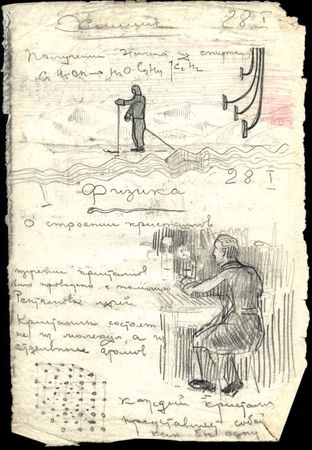 Химия 28.I
Получение из спирта
28 I
Физика
О строении кристаллов
кристаллов
было проведено с помощью
Рентгеновых лучей
Кристаллы состоят
не из молекул а из
отдельных атомов
каждый кристалл
представляет собой
как бы одну